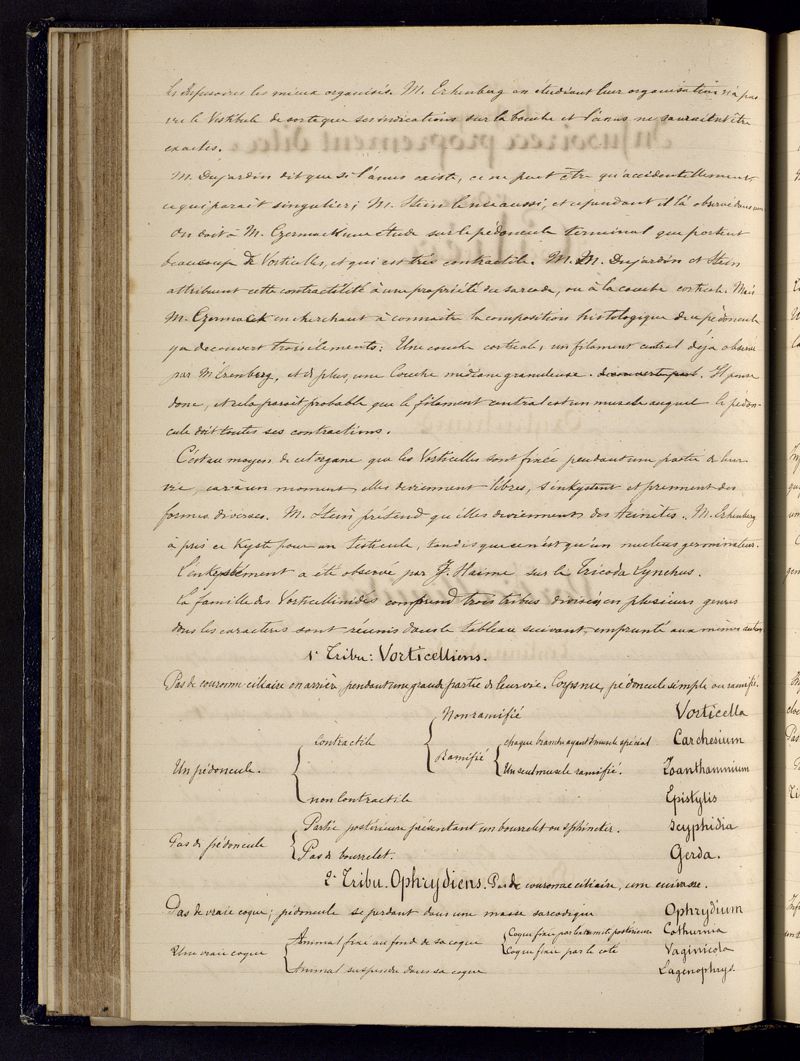 les infusoires les mieux organisés. M. Erhenberg en étudiant leur organisation n'a pas
vu le Vestibule de sorte que ses indications sur la bouche et l'anus ne sauraient être
exactes.
M. Dujardin dit que si l'anus existe, ce ne peut être qu'accidentellement,
ce qui parait singulier; M. Stein le nie aussi, et cependant il l'a observé dans
On doit à M. Czermack une étude sur le pédoncule terminal que portent
beaucoup de Vorticelles, et qui est très contractile. M. M. Dujardin et Stein
attribuent cette contractilité à une propriété du sarcode, ou à la couche corticale. Mais
M. Czermack en cherchant à connaitre la composition histologique de ce pédoncule
y a découvert trois éléments: Une couche corticale, un filament central déjà observé
par M. Erenberg, et de plus, une Couche médiane granuleuse. découverte par. Il pense
donc, et cela parait probable que le filament central est un muscle auquel le pédon-
cule doit toutes ses contractions.
C'est au moyen de cet organe que les Vorticelles sont fixée pendant une partie de leur
vie, car à un moment, elles deviennent libres, s'enkystent et prennent des
formes diverses. M. Stein prétend qu'elles deviennent des Acinètes. M. Erhenberg
à pris ce Kyste pour un testicule, tandis que ce n'est qu'un nucleus germinateur.
L'enkystement a été observé par J. Haime sur le Tricoda Lynchus.
La famille des Vorticellinidés comprend trois tribus divisées en plusieurs genres
dont les caractères sont réunis dans le tableau suivant, emprunté aux mêmes auteurs
1e Tribu: Vorticelliens.
Pas de couronne ciliaire en arrière, pendant une grande partie de leur vie. Corps nu, pédoncule simple ou ramifié.
Non ramifié Vorticella
Contractile chaque branche ayant 1 muscle spécial Carchesium
Ramifié
Un pédoncule. Un seul muscle ramifié. Zoanthamnium
non Contractile Epistylis
Partie postérieure présentant un bourrelet ou sphincter. Scyphidia
Pas de pédoncule
Pas de bourrelet. Gerda.
2e Tribu. Ophrydiens. Pas de couronne ciliaire, une cuirasse.
Pas de vraie coque; pédoncule se perdant dans une masse sarcodique Ophrydium
Coque fixée par l'extremité postérieure Cothurnia
Animal fixé au fond de sa coque
Une vraie coque Coque fixée par le coté Vaginicola
Animal suspendu dans sa coque Lagenophrys.